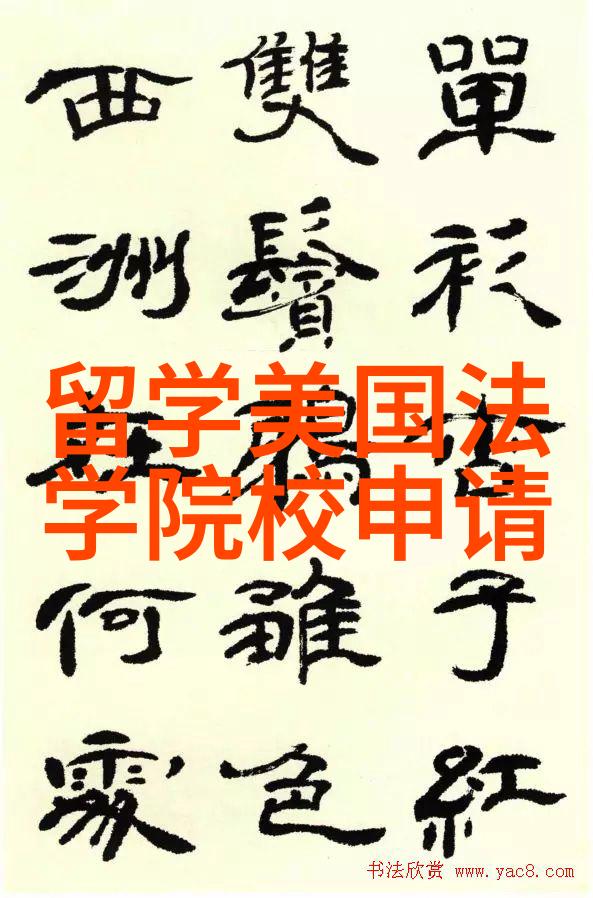 單衫杏子紅
雙鬢鴉雛色
西洲在何處
留学美国法
学院校申请
书法欣赏 www.yac8.com